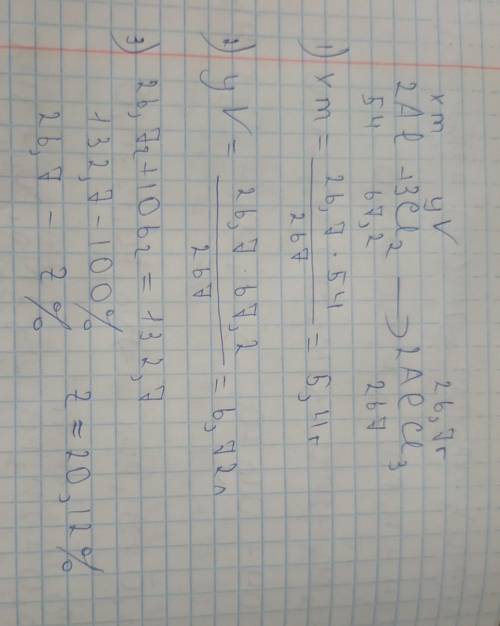 xm yV 26,7г
2Al + 3Cl₂ → 2AlCl₃
54 67,2 267
1) xm = 26,7 · 54 / 267 = 5,4г
2) yV = 26,7 · 67,2 / 267 = 6,72л
3) 26,7г + 106г = 132,7
132,7 - 100%
26,7 - z% z ≈ 20,12%